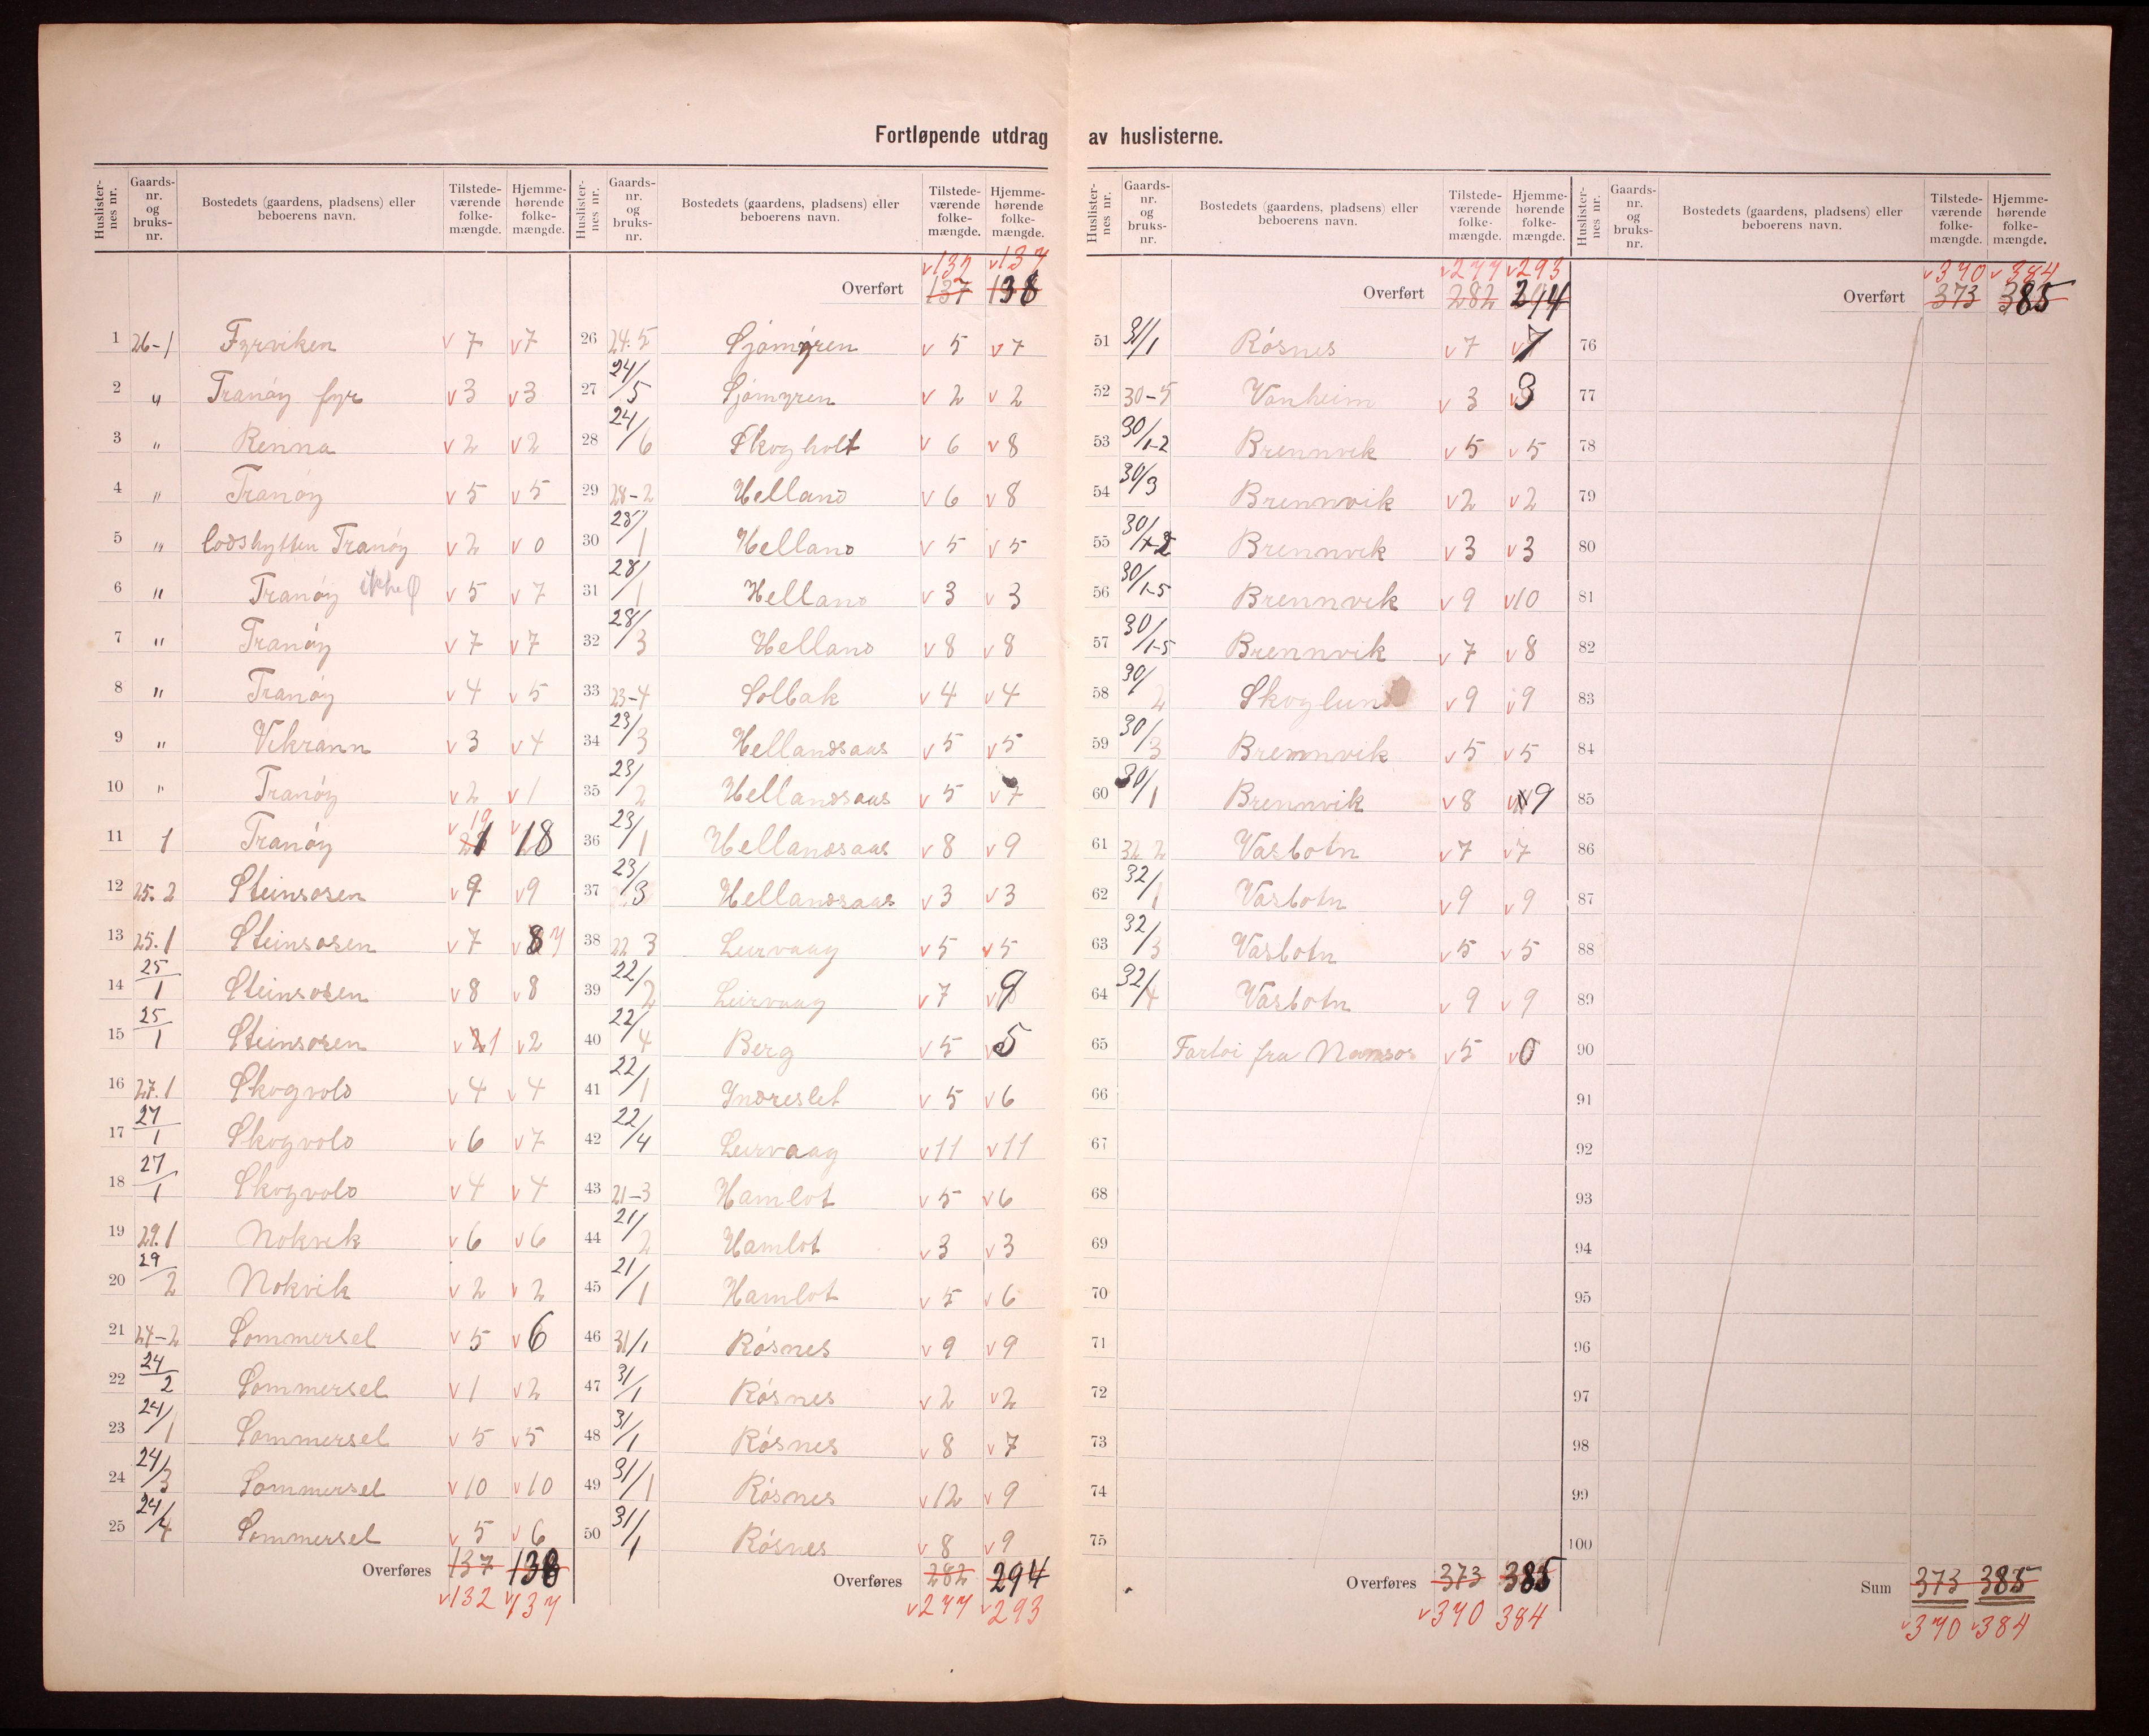 Fortløpende utdrag av huslisterne.
Huslister-nes nr. Gaards-nr. og bruks-nr. Bostedets (gaardens, pladsens) eller beboerens navn. Tilstede-værende folke-mængde. Hjemme-hørende folke-mængde.
1 26-1 Fyrviken v 7 v 7
2 " Tranøy fyr v 3 v 3
3 " Renna v 2 v 2
4 " Tranøy v 5 v 5
5 " Lodshytten Tranøy v 2 v 0
6 " Tranøy ikke v 5 v 7
7 " Tranøy v 7 v 7
8 " Tranøy v 4 v 5
9 " Vikrann v 3 v 4
10 " Tranøy v 2 v 1
11 1 Tranøy v 19 v 18
12 25.2 Steinsosen v 9 v 9
13 25.1 Steinsosen v 7 v 8 7
14 25/1 Steinsosen v 8 v 8
15 25/1 Steinsosen v 2 1 v 2
16 27.1 Skogvold v 4 v 4
17 27/1 Skogvold v 6 v 7
18 27/1 Skogvold v 4 v 4
19 29.1 Nokvik v 6 v 6
20 29/2 Nokvik v 2 v 2
21 24-2 Sommersel v 5 v 6
22 24/2 Sommersel v 1 v 2
23 24/1 Sommersel v 5 v 5
24 24/3 Sommersel v 10 v 10
25 24/4 Sommersel v 5 v 6
Overføres 137 138
v 132 v 137
Huslister-nes nr. Gaards-nr. og bruks-nr. Bostedets (gaardens, pladsens) eller beboerens navn. Tilstede-værende folke-mængde. Hjemme-hørende folke-mængde.
v 132 v 137
Overført 137 138
26 24.5 Sjømyren v 5 v 7
27 24/5 Sjømyren v 2 v 2
28 24/6 Skogholt v 6 v 8
29 28-2 Helland v 6 v 8
30 28/1 Helland v 5 v 5
31 28/1 Helland v 3 v 3
32 28/3 Helland v 8 v 8
33 23-4 Solbak v 4 v 4
34 23/3 Hellandsaas v 5 v 5
35 23/2 Hellandsaas v 5 v 7
36 23/1 Hellandsaas v 8 v 9
37 23/3 Hellandsaas v 3 v 3
38 22 3 Leirvaag v 5 v 5
39 22/2 Leirvaag v 7 v 9
40 22/4 Berg v 5 v 5
41 22/1 Indreslet v 5 v 6
42 22/4 Leirvaag v 11 v 11
43 21-3 Hamlot v 5 v 6
44 21/2 Hamlot v 3 v 3
45 21/1 Hamlot v 5 v 6
46 31/1 Røsnes v 9 v 9
47 31/1 Røsnes v 2 v 2
48 31/1 Røsnes v 8 v 7
49 31/1 Røsnes v 12 v 9
50 31/1 Røsnes v 8 v 9
Overføres 282 294
v 277 v 293
Huslister-nes nr. Gaards-nr. og bruks-nr. Bostedets (gaardens, pladsens) eller beboerens navn. Tilstede-værende folke-mængde. Hjemme-hørende folke-mængde.
v 277 v 293
Overført 282 294
51 31/1 Røsnes v 7 v 7
52 30-5 Vonheim v 3 v 3
53 30/1-2 Brennvik v 5 v 5
54 30/3 Brennvik v 2 v 2
55 30/1-2 Brennvik v 3 v 3
56 30/1-5 Brennvik v 9 v 10
57 30/1-5 Brennvik v 7 v 8
58 30/2 Skoglund v 9 v 9
59 30/3 Brennvik v 5 v 5
60 30/1 Brennvik v 8 v 9
61 32 2 Vasbotn v 7 v 7
62 32/1 Vasbotn v 9 v 9
63 32/3 Vasbotn v 5 v 5
64 32/4 Vasbotn v 9 v 9
65 Fartøi fra Namsos v 5 v 0
66
67
68
69
70
71
72
73
74
75
Overføres 373 385
v 370 384
Huslister-nes nr. Gaards-nr. og bruks-nr. Bostedets (gaardens, pladsens) eller beboerens navn. Tilstede-værende folke-mængde. Hjemme-hørende folke-mængde.
v 370 v 384
Overført 373 385
76
77
78
79
80
81
82
83
84
85
86
87
88
89
90
91
92
93
94
95
96
97
98
99
100
Sum 373 385
v 370 v 384